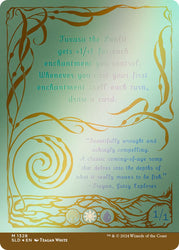 Tuvasa the Sunlit
gets +1/+1 for each
enchantment you control.
Whenever you cast your first
enchantment spell each turn,
draw a card.
"Beautifully wrought and
achingly compelling.
A classic coming-of-age romp
that delves into the depths of
what it really means to be fish."
Gossip Explorer
1/1
M 1328
SLD • EN TEAGAN WHITE
™ & © 2024 Wizards of the Coast